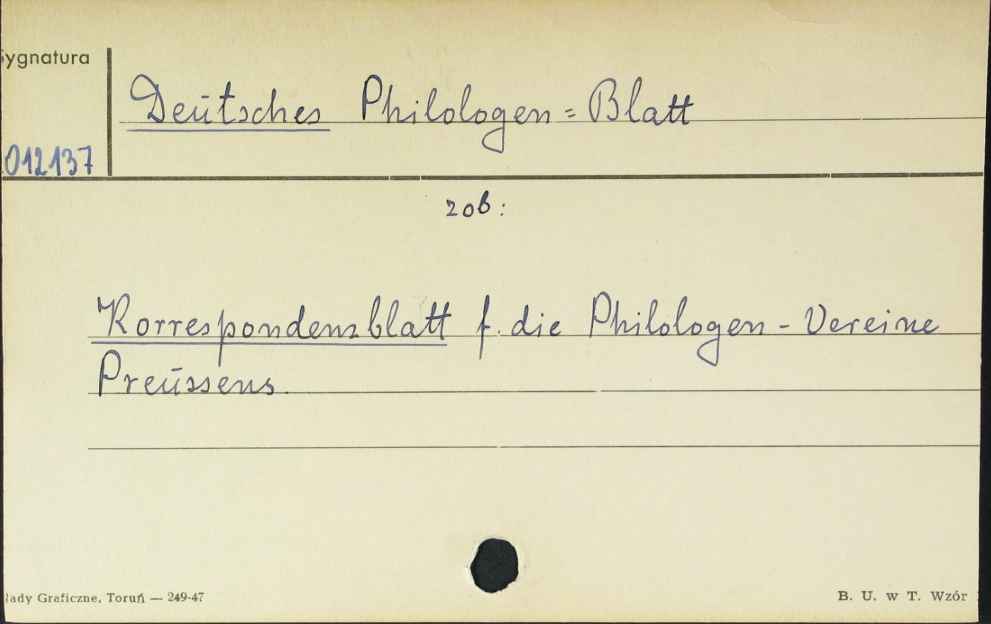 Sygnatura
Deutsches Philologen=Blatt
012137
zob:
Korrespondenzblatt f. die Philologen-Vereine
Preussens.
łady Graficzne, Toruń — 249-47
B. U. w T. Wzór